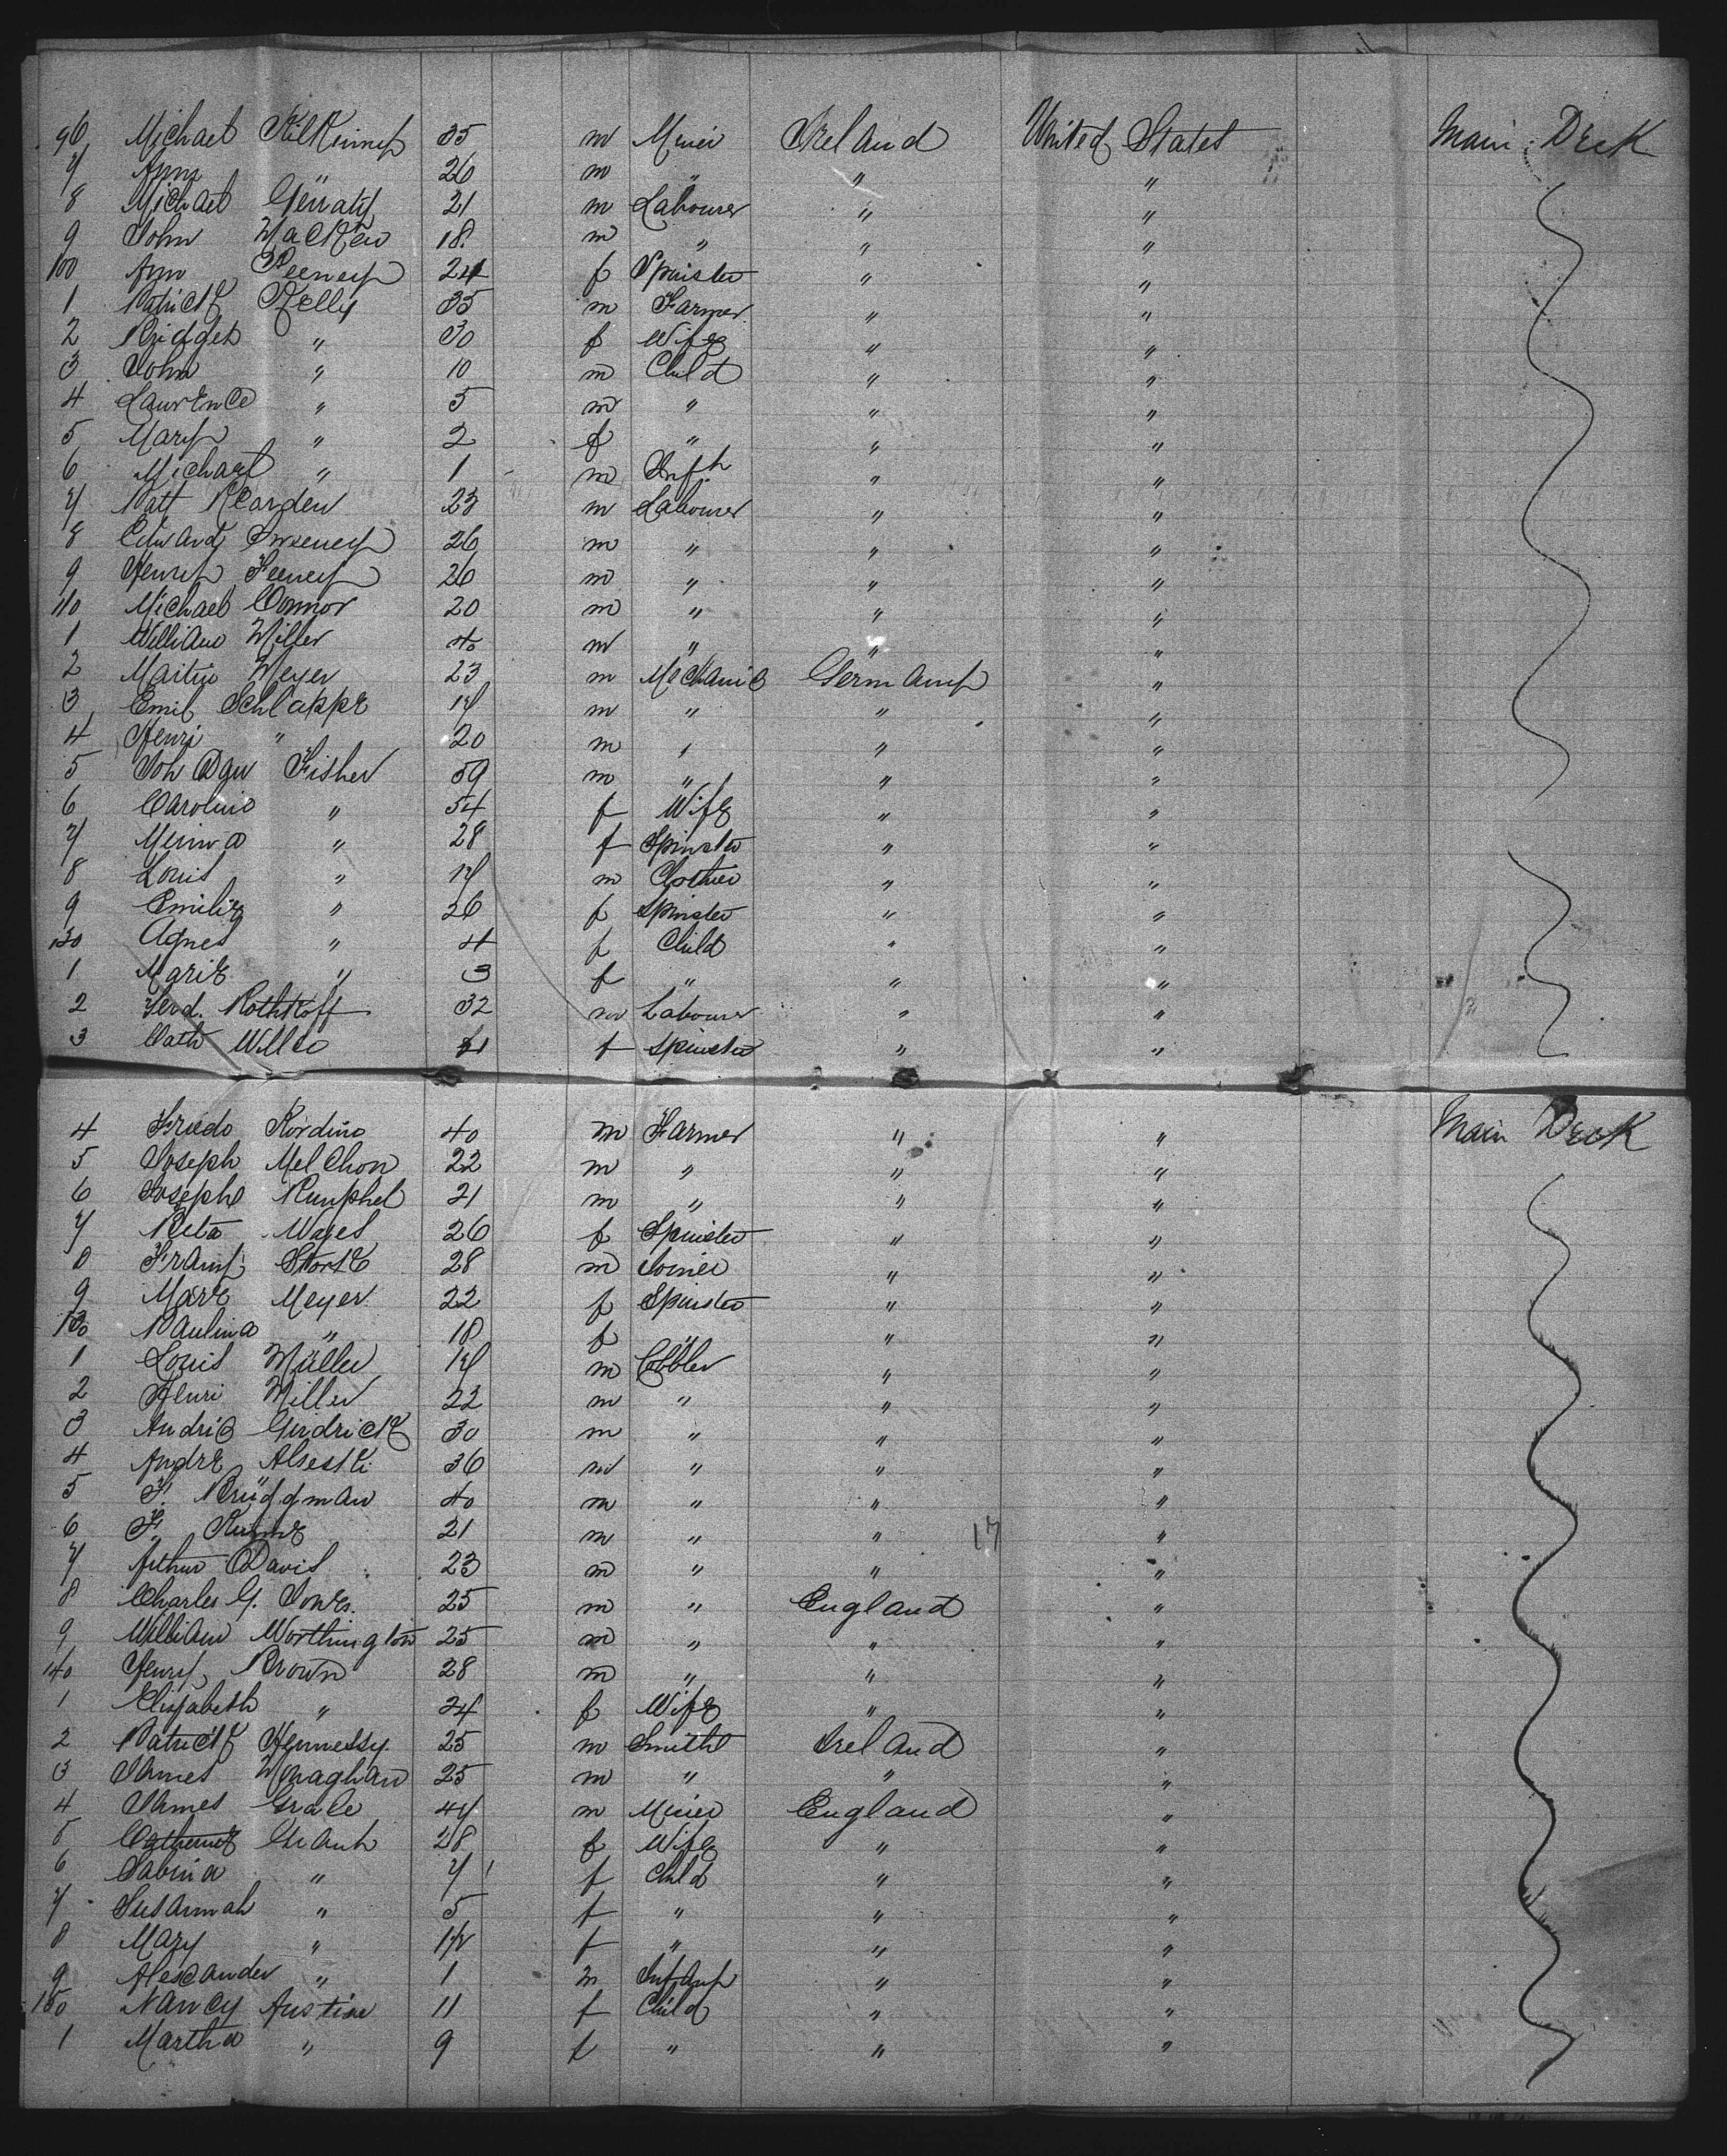 96 Michael Kilkenny 35 m Miner Ireland United States Main Deck
7 Ann " 26 m " " "
8 Michael Gerraty 21 m Labourer " "
9 John Macken 18 m " " "
100 Ann Feeney 24 f Spinster " "
1 Patrick Kelly 35 m Farmer " "
2 Bridget " 30 f Wife " "
3 John " 10 m Child " "
4 Lawrence " 5 m " " "
5 Mary " 2 f " " "
6 Michael " 1 m Inft " "
7 Patt Rearden 23 m Labourer " "
8 Edward Sweeney 26 m " " "
9 Henry Feeney 20 m " " "
110 Michael Connor 20 m " " "
1 William Miller 40 m " " "
2 Martin Meyer 23 m Mechanic Germany "
3 Emil Schlappe 17 m " " "
4 Henri " 20 m " " "
5 Joh Fisher 59 m " " "
6 Caroline " 54 f Wife " "
7 " 28 f Spinster " "
8 Louis " 17 m Clothier " "
9 Emilie " 26 f Spinster " "
120 Agnes " 4 f Child " "
1 Marie " 3 f " " "
2 Ferd. Rothkoff 32 m Labourer " "
3 Cath f Spinster " "
4 40 m Farmer " " Main Deck
5 Joseph Melchon 22 m " " "
6 Joseph Rumphel 21 m " " "
7 26 f Spinster " "
8 Franz Stork 28 m Joiner " "
9 Marie Meyer 22 f Spinster " "
130 Paulina " 18 f " " "
1 Louis Müller 17 m Cobbler " "
2 Henri Miller 22 m " " "
3 30 m " " "
4 Andre 36 m " " "
5 F. Brüggman 40 m " " "
6 F. 21 m " " "
7 Arthur Davis 23 m " " "
17
8 Charles G. Jones. 25 m " England "
9 William Worthington 25 m " " "
140 Henry Brown 28 m " " "
1 Elizabeth " 24 f Wife " "
2 Patrick Hennessy 25 m Smith Ireland "
3 James Monaghan 25 m " " "
4 James 47 m Miner England "
5 Catherine Grant 28 f Wife " "
6 Sabina " 7 f Child " "
7 Susannah " 5 f " " "
8 Mary " f " " "
9 Alexander " 1 m Infant " "
150 Nancy Austine 11 f Child " "
1 Martha " 9 f " " "